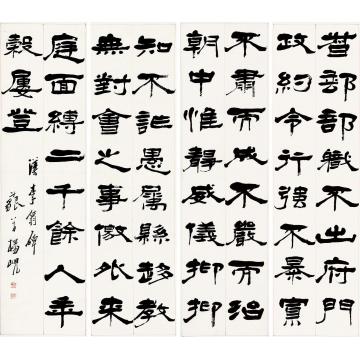 督郵部職不出府門
政約令行強不暴寡
不肅而成不嚴而治
朝中惟靜威儀抑抑
知不詐愚屬縣趍教
無對會之事徼外來
庭面縛二千餘人年
穀屢登
漢李翕碑
藐翁楊峴